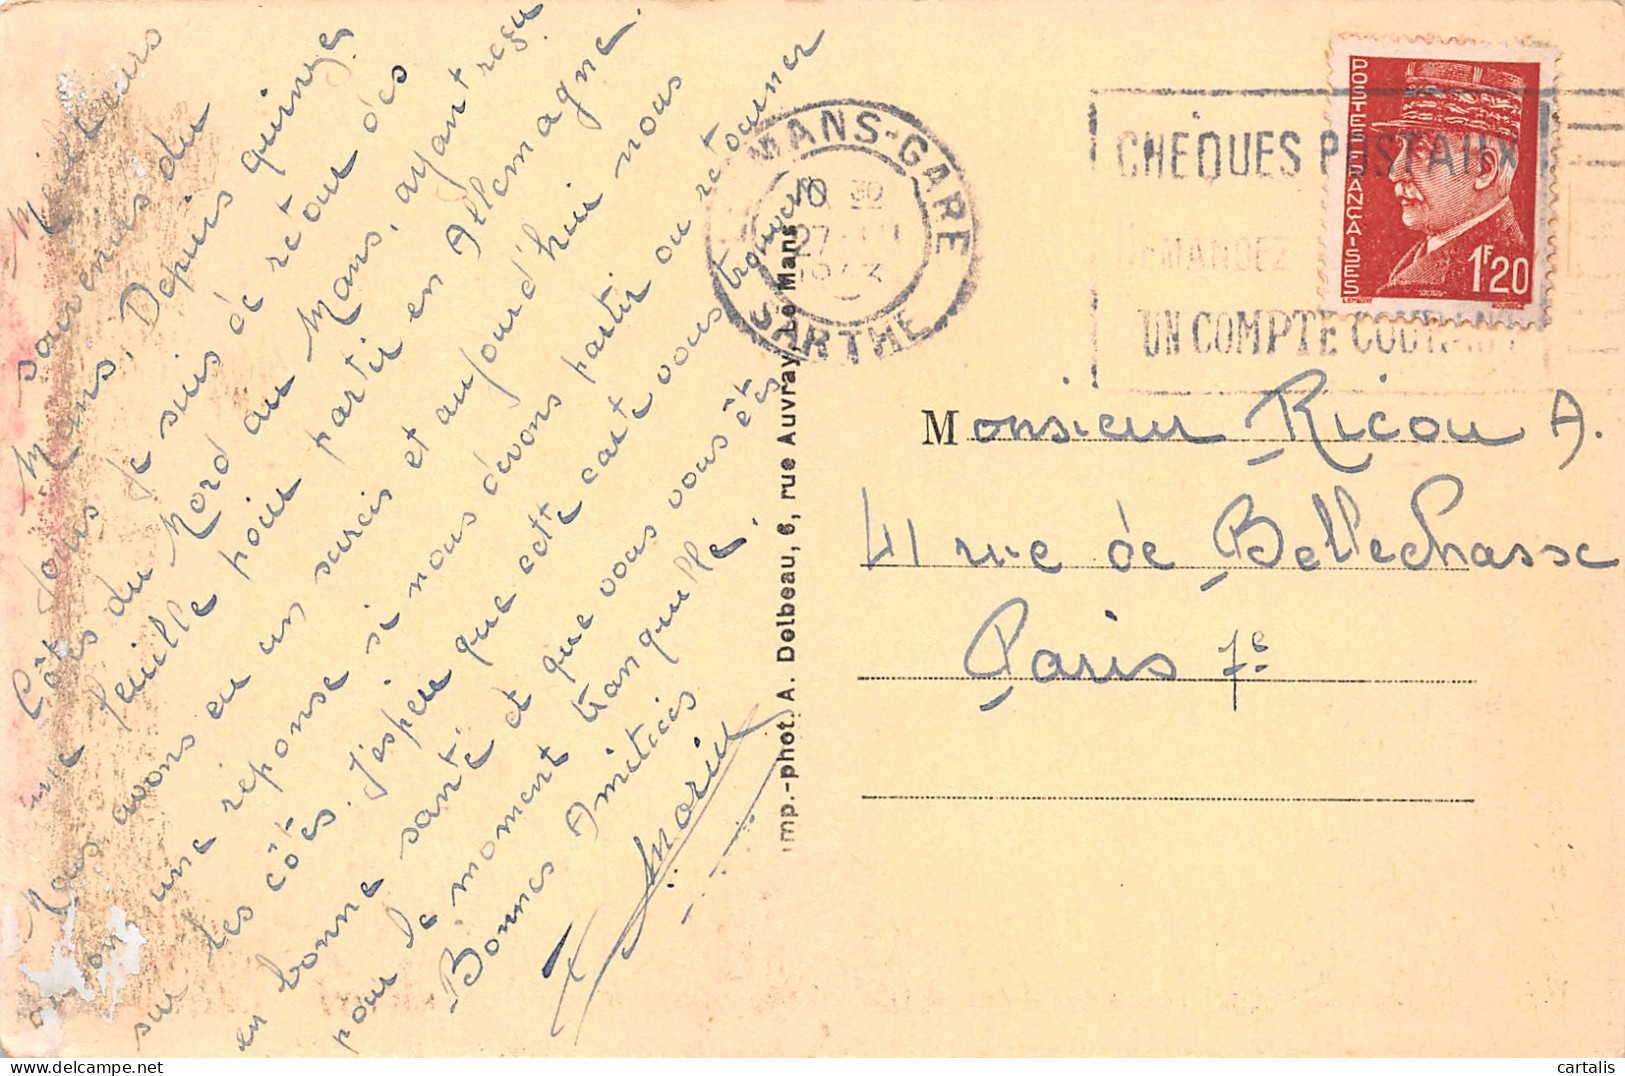 Meilleurs
souvenirs du
Mans. Depuis quinze
jours je suis de retour des
Côtes du Nord au Mans, ayant reçu
une feuille pour partir en Allemagne.
Nous avons eu un sursis et aujourd'hui nous
une réponse si nous devons partir ou retourner
sur les côtes. J'espère que cette carte vous trouvera
en bonne santé et que vous vous êtes
pour le moment tranquille.
Bonnes Amitiés
Imp.-phot. A. Dolbeau, 6, rue Auvray, Le Mans
MANS-GARE
27
1943
SARTHE
CHEQUES POSTAUX
DEMANDEZ
UN COMPTE COURANT
POSTES FRANÇAISES
1F20
Monsieur Ricou A.
41 rue de Bellechasse
Paris 7e
cartalis